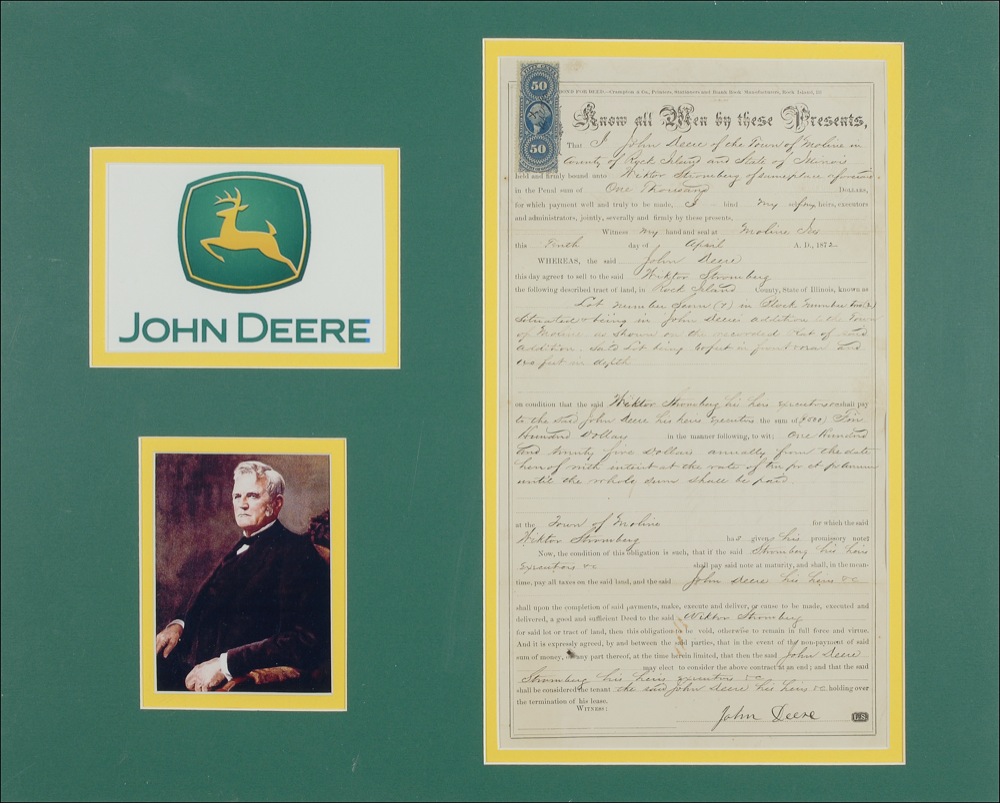 JOHN DEERE
50
50
BOND FOR DEED.—Crampton & Co., Printers, Stationers and Blank Book Manufacturers, Rock Island, Ill
Know all Men by these Presents,
That I John Deere of the Town of Moline in
County of Rock Island and State of Illinois
held and firmly bound unto Wiktor Stromberg of same place aforesaid
in the Penal sum of One Thousand DOLLARS,
for which payment well and truly to be made, I bind my self, my heirs, executors
and administrators, jointly, severally and firmly by these presents.
Witness my hand and seal at Moline Ills
this Tenth day of April A. D., 1872
WHEREAS, the said John Deere
this day agreed to sell to the said Wiktor Stromberg
the following described tract of land, in Rock Island County, State of Illinois, known as
Lot number (7) in Block number two (2)
situated & being in John Deere addition to the Town
of Moline as shown on the recorded Plat of said
addition. Said Lot being feet in front & rear and
feet in depth
on condition that the said Wiktor Stromberg his heirs executors shall pay
to the said John Deere his heirs executors the sum of
Hundred Dollars in the manner following, to wit: One Hundred
and twenty five Dollars annually from the date
hereof with interest at the rate of ten pr ct pr annum
until the whole sum shall be paid.
at the Town of Moline for which the said
Wiktor Stromberg has given his promissory note
Now, the condition of this obligation is such, that if the said Stromberg his heirs
Executors &c shall pay said note at maturity, and shall, in the mean-
time, pay all taxes on the said land, and the said John Deere his heirs &c
shall upon the completion of said payments, make, execute and deliver, or cause to be made, executed and
delivered, a good and sufficient Deed to the said Wiktor Stromberg
for said lot or tract of land, then this obligation to be void, otherwise to remain in full force and virtue.
And it is expressly agreed, by and between the said parties, that in the event of the non-payment of said
sum of money, or any part thereof, at the time herein limited, that then the said John Deere
may elect to consider the above contract at an end; and that the said
Stromberg his heirs executors &c
shall be considered the tenant the said John Deere his heirs &c holding over
the termination of his lease.
WITNESS:
John Deere L.S.